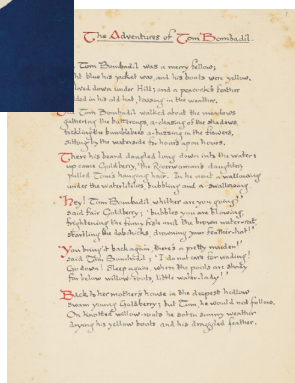 The Adventures of Tom Bombadil.
Tom Bombadil was a merry fellow;
blue his jacket was, and his boots were yellow,
lived down under Hill; and a peacock's feather
nodded in his old hat, tossing in the weather.
Old Tom Bombadil walked about the meadows
gathering the buttercups, a-chasing of the shadows,
tickling the bumblebees a-buzzing in the flowers,
sitting by the waterside for hours upon hours.
There his beard dangled long down into the water:
up came Goldberry, the Riverwoman's daughter;
pulled Tom's hanging hair. In he went a-wallowing
under the waterlilies, bubbling and a-swallowing.
'Hey! Tom Bombadil, whither are you going?'
said fair Goldberry; 'bubbles you are blowing,
frightening the finny fish and the brown water-rat,
startling the dabchicks, drowning your feather-hat!'
'You bring it back again, there's a pretty maiden!'
said Tom Bombadil; 'I do not care for wading!
Go down! Sleep again, where the pools are shady
far below willow-roots, little water-lady!'
Back to her mother's house in the deepest hollow
swam young Goldberry; but Tom, he would not follow.
On knotted willow-roots he sat in sunny weather
drying his yellow boots and his draggled feather.